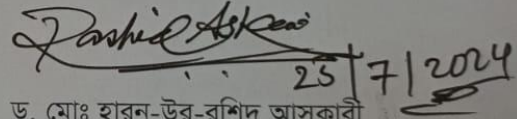 Rashid Askari
25/7/2024
ড. মোঃ হারুন-উর-রশিদ আসকারী